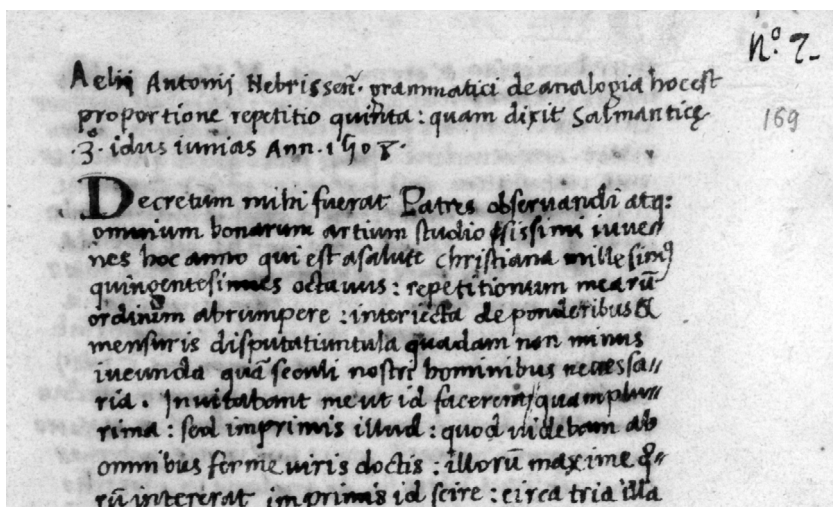 nº 7.
Aelij Antonij Nebrissen̄. grammatici de analogia hoc est
proportione repetitio quinta: quam dixit Salmanticę
169
.3.º idus iunias Ann. 1508.
Decretum mihi fuerat Patres obseruandi atq:
omnium bonarum artium studiosissimi iuue
nes hoc anno qui est a salute christiana millesimꝰ
quingentesimus octauus: repetitionum mearū
ordinem abrumpere: interiecta de ponderibus &
mensuris disputatiuntula quadam non minus
iucunda quā seculi nostri hominibus necessa//
ria. Inuitabant me ut id facerem quam plur//
rima: sed imprimis illud: quod uidebam ab
omnibus ferme uiris doctis: illorū maxime
rū intererat imprimis id scire: circa tria illa